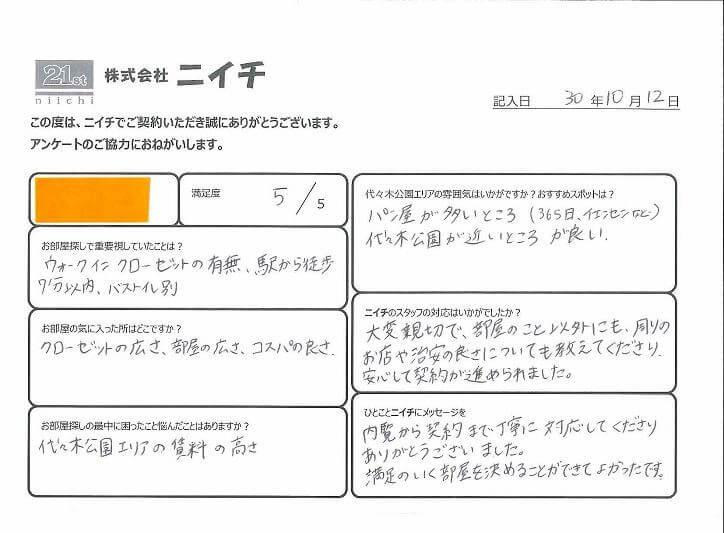 21st
niichi
株式会社 ニイチ
記入日 30年10月12日
この度は、ニイチでご契約いただき誠にありがとうございます。
アンケートのご協力におねがいします。
満足度 5/5
お部屋探しで重要視していたことは?
ウォークインクローゼットの有無、駅から徒歩
7分以内、バストイレ別
お部屋の気に入った所はどこですか?
クローゼットの広さ、部屋の広さ、コスパの良さ.
お部屋探しの最中に困ったこと悩んだことはありますか?
代々木公園エリアの賃料の高さ
代々木公園エリアの雰囲気はいかがですか?おすすめスポットは?
パン屋が多いところ(365日、イエンセンなど)
代々木公園が近いところが良い.
ニイチのスタッフの対応はいかがでしたか?
大変親切で、部屋のこと以外にも、周りの
お店や治安の良さについても教えてくださり.
安心して契約が進められました。
ひとことニイチにメッセージを
内覧から契約まで丁寧に対応してくださり
ありがとうございました。
満足のいく部屋を決めることができてよかったです。